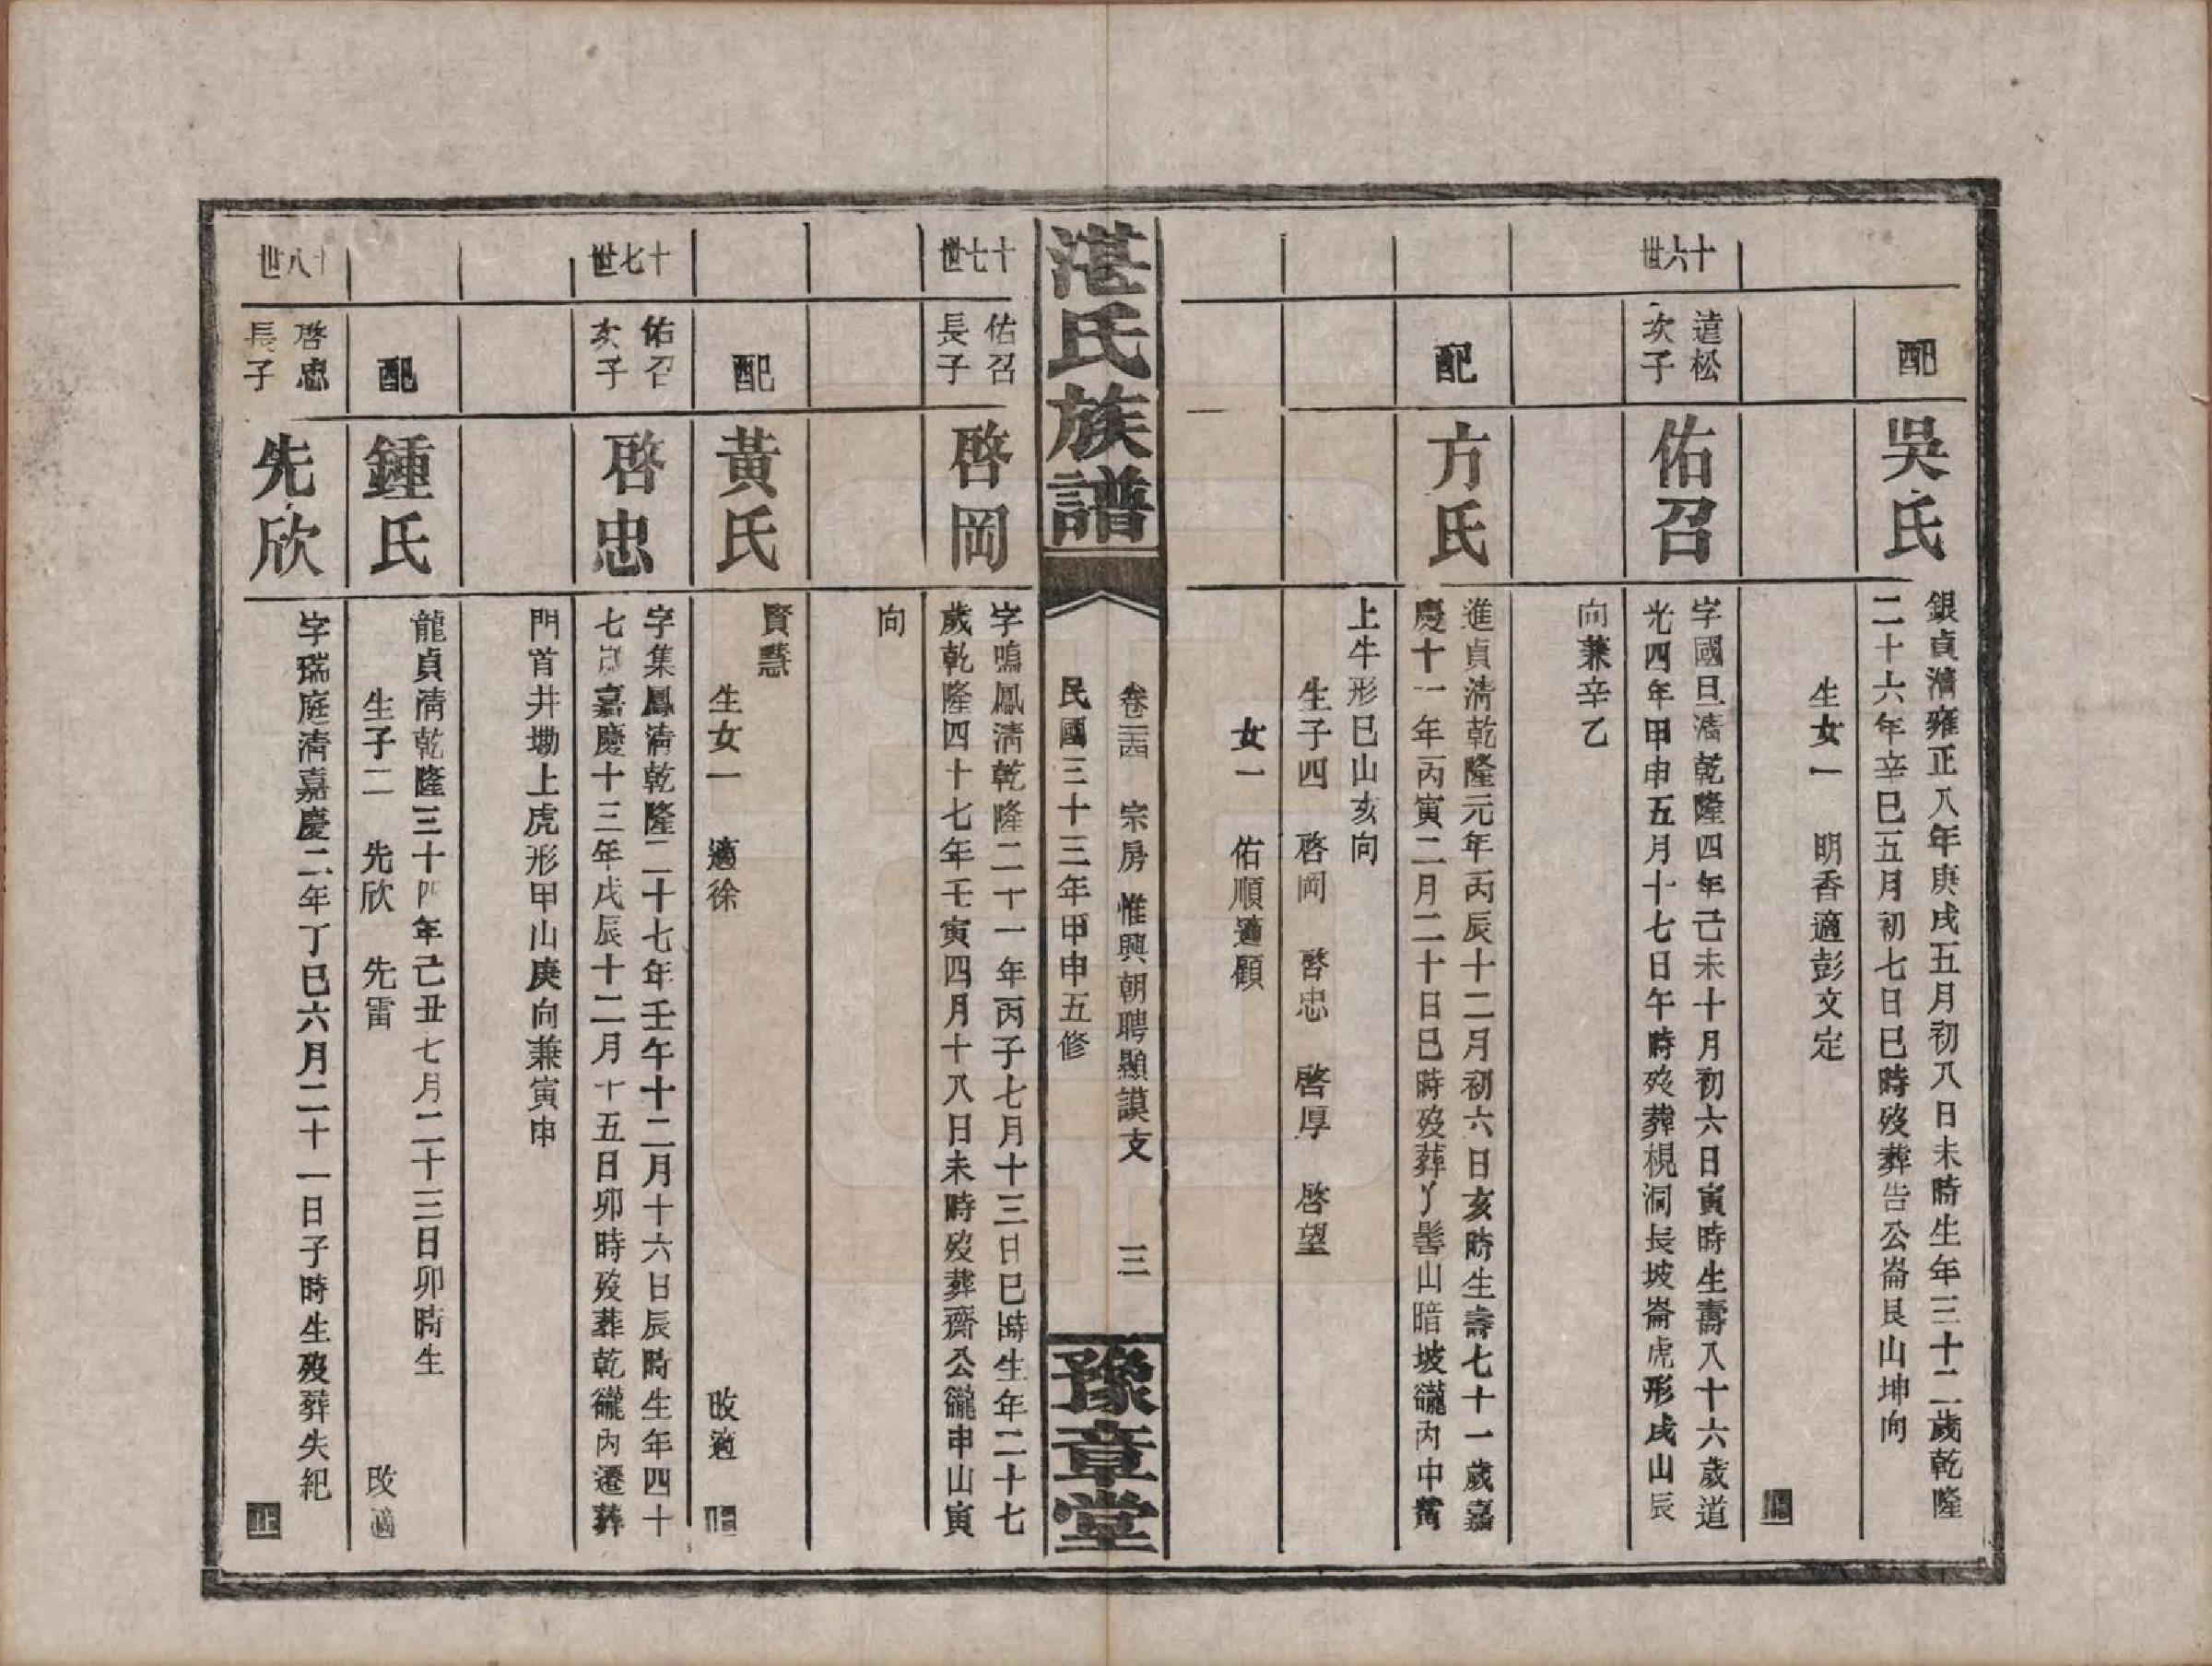 配
吳氏
銀貞清雍正八年庚戌五月初八日未時生年三十二歲乾隆
二十六年辛巳五月初七日巳時歿葬告公崙艮山坤向
生女一　明香適彭文定
止
十六世
遠松
次子
佑召
字國旦清乾隆四年己未十月初六日寅時生壽八十六歲道
光四年甲申五月十七日午時歿葬梘洞長坡崙虎形戌山辰
向兼辛乙
配
方氏
進貞清乾隆元年丙辰十二月初六日亥時生壽七十一歲嘉
慶十一年丙寅二月二十日巳時歿葬丫髻山暗坡隴內中黃
上牛形巳山亥向
生子四　啓岡　啓忠　啓厚　啓望
女一　佑順適顧
湛氏族譜
卷三四　宗房　惟興朝聘顯謨支　三
民國三十三年甲申五修
豫章堂
十七世
佑召
長子
啓岡
字鳴鳳清乾隆二十一年丙子七月十三日巳時生年二十七
歲乾隆四十七年壬寅四月十八日未時歿葬齊公隴申山寅
向
配
黃氏
賢慧
生女一　適徐　改適
止
十七世
佑召
次子
啓忠
字集鳳清乾隆二十七年壬午十二月十六日辰時生年四十
七歲嘉慶十三年戊辰十二月十五日卯時歿葬乾隴內遷葬
門首井坳上虎形甲山庚向兼寅申
配
鍾氏
龍貞清乾隆三十四年己丑七月二十三日卯時生
生子二　先欣　先雷　改適
十八世
啓忠
長子
先欣
字瑞庭清嘉慶二年丁巳六月二十一日子時生歿葬失紀
止